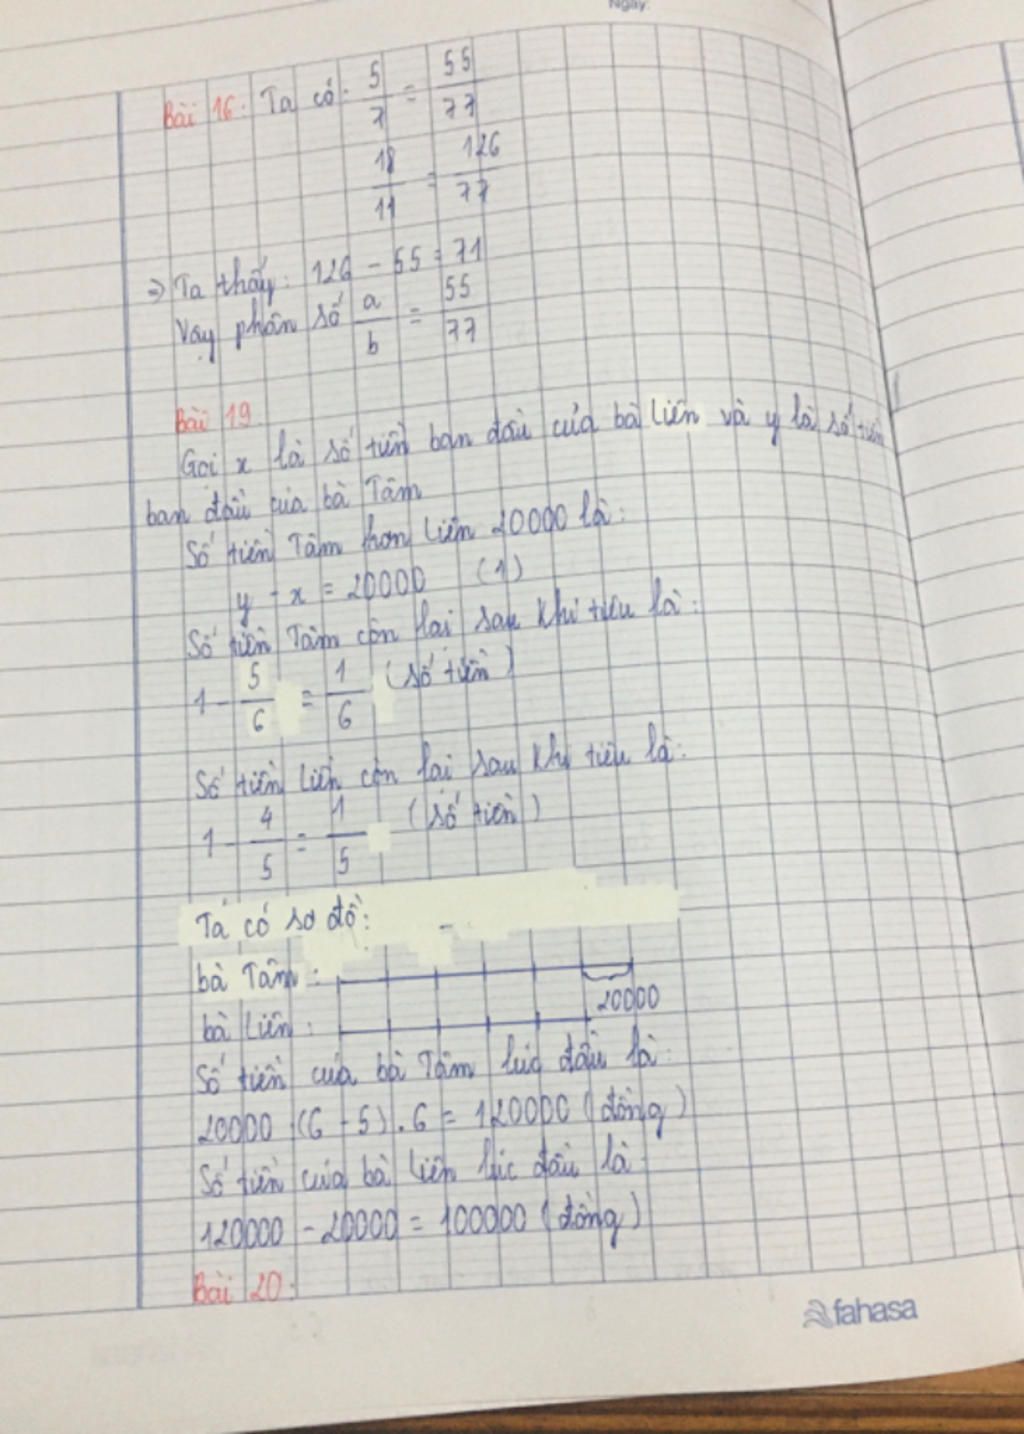 Ngày:
Bài 16: Ta có: 5/7 = 55/77
18/11 = 126/77
⇒ Ta thấy: 126 - 55 = 71
Vậy phân số a/b = 55/77
Bài 19
Gọi x là số tiền ban đầu của bà Liên và y là số tiền
ban đầu của bà Tâm
Số tiền Tâm hơn Liên 20000 là:
y - x = 20000 (1)
Số tiền Tâm còn lại sau khi tiêu là:
1 - 5/6 = 1/6 (số tiền)
Số tiền Liên còn lại sau khi tiêu là:
1 - 4/5 = 1/5 (số tiền)
Ta có sơ đồ:
bà Tâm:
20000
bà Liên:
Số tiền của bà Tâm lúc đầu là:
20000 : (6 - 5) . 6 = 120000 (đồng)
Số tiền của bà Liên lúc đầu là:
120000 - 20000 = 100000 (đồng)
Bài 20:
fahasa